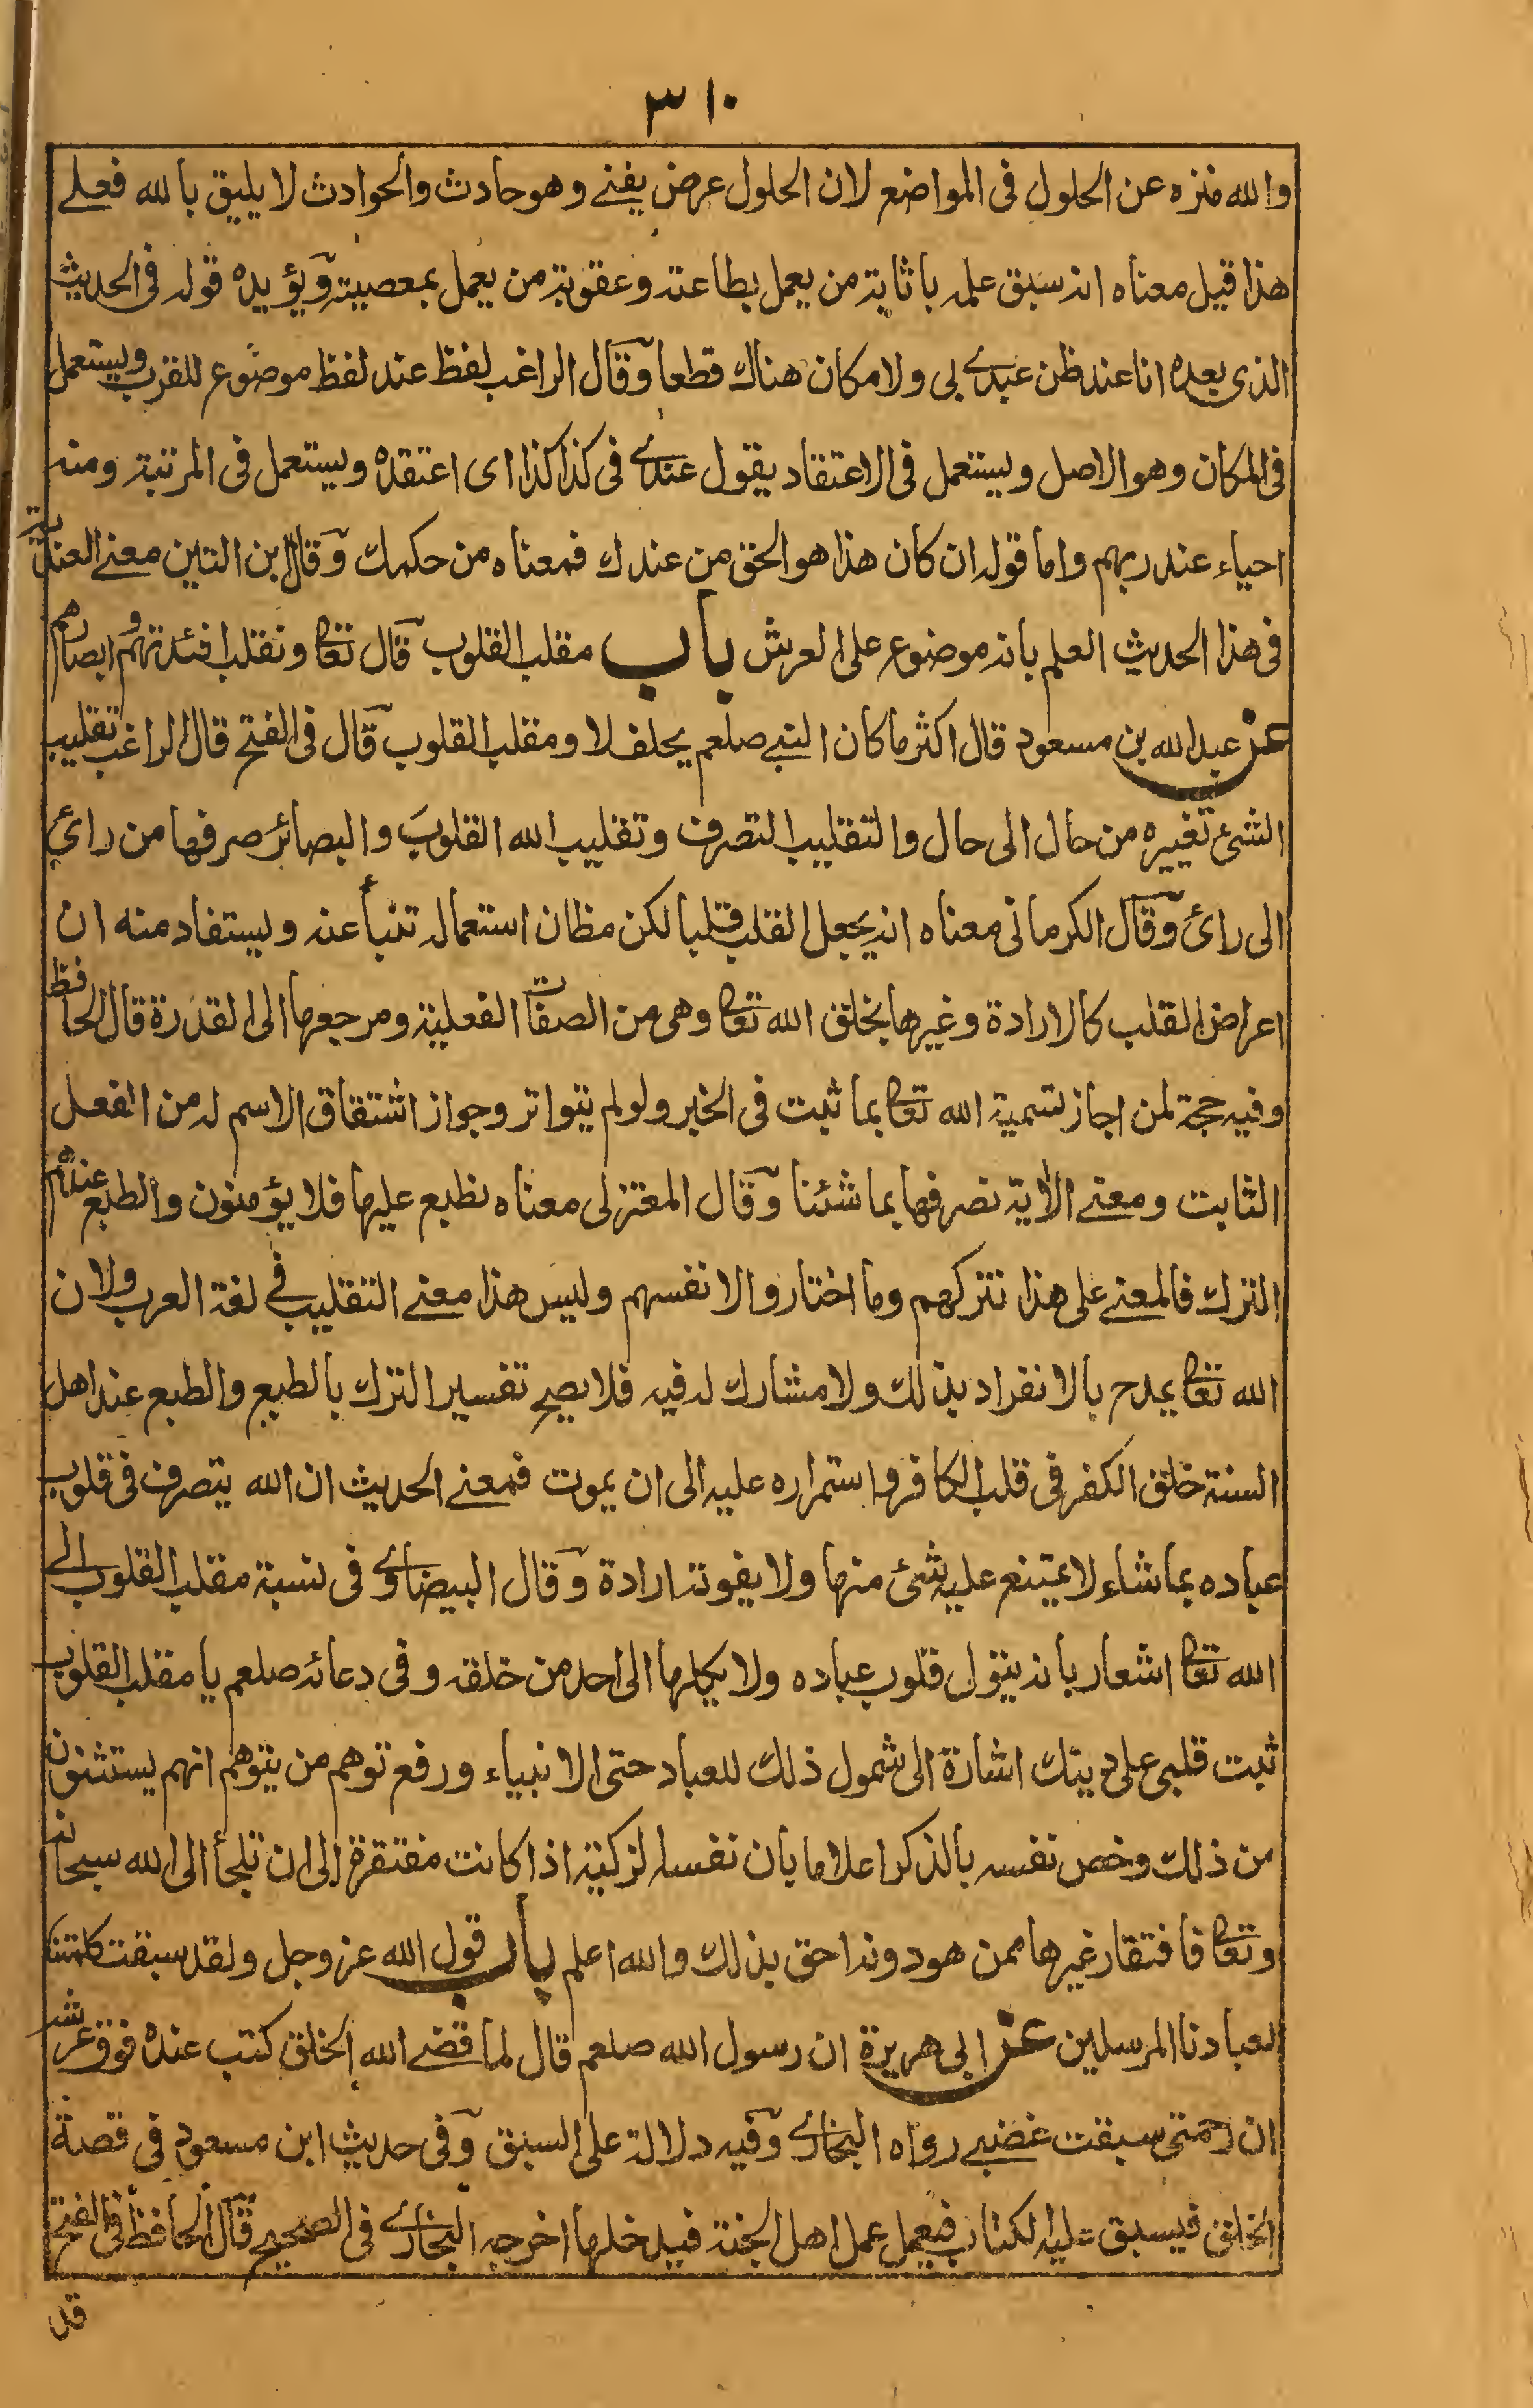 ٣١٠
والله منزه عن الحلول فى المواضع لان الحلول عرض يفنے وهو حادث والحوادث لا يليق بالله فعلے
هذا قيل معناه انه سبق علمه باثابة من يعمل بطاعته وعقوبة من يعمل بمعصيته ويؤيده قوله فى الحديث
الذى بعده انا عند ظن عبدے بى ولا مكان هناك قطعا وقال الراغب لفظ عند لفظ موضوع للقرب ويستعمل
فى المكان وهو الاصل ويستعمل فى الاعتقاد يقول عندے فى كذا كذا اى اعتقده ويستعمل فى المرتبة ومنه
احياء عند ربهم واما قوله ان كان هذا هو الحق من عندك فمعناه من حكمك وقال ابن التين معنے العندية
فى هذا الحديث العلم بانه موضوع على العرش باب مقلب القلوب قال تعا ونقلب افئدتهم وابصارهم
عن عبد الله بن مسعود قال اكثر ما كان النبے صلعم يحلف لا ومقلب القلوب قال فى الفتح قال الراغب تقليب
الشئ تغييره من حال الى حال والتقليب التصرف وتقليب الله القلوب والبصائر صرفها من رائ
الى رائ وقال الكرمانى معناه انه يجعل القلب قلبا لكن مظان استعماله تنبأ عنه ويستفاد منه ان
اعراض القلب كالارادة وغيرها بخلق الله تعا وهى من الصفات الفعلية ومرجعها الى القدرة قال الحافظ
وفيه حجة لمن اجاز تسمية الله تعا بما ثبت فى الخبر ولو لم يتواتر وجواز اشتقاق الاسم له من الفعل
الثابت ومعنے الاية نصرفها بما شئنا وقال المعتزلى معناه نطبع عليها فلا يؤمنون والطبع عندهم
الترك فالمعنے على هذا نتركهم وما اختاروا لانفسهم وليس هذا معنے التقليب فے لغة العرب ولان
الله تعا يمدح بالانفراد بذلك ولا مشارك له فيه فلا يصح تفسير الترك بالطبع والطبع عند اهل
السنة خلق الكفر فى قلب الكافر واستمراره عليه الى ان يموت فمعنے الحديث ان الله يتصرف فى قلوب
عباده بما شاء لا يمتنع عليه شئ منها ولا يفوته ارادة وقال البيضاوے فى نسبة مقلب القلوب الے
الله تعا اشعار بانه يتول قلوب عباده ولا يكلها الى احد من خلقه وفى دعائه صلعم يا مقلب القلوب
ثبت قلبى على دينك اشارة الى شمول ذلك للعباد حتى الانبياء ورفع توهم من يتوهم انهم يستثنون
من ذلك وخص نفسه بالذكر اعلاما بان نفسه لزكية اذا كانت مفتقرة الى ان تلجأ الى الله سبحانه
وتعا فافتقار غيرها ممن هو دونه احق بذلك والله اعلم باب قول الله عز وجل ولقد سبقت كلمتنا
لعبادنا المرسلين عن ابى هريرة ان رسول الله صلعم قال لما قضے الله الخلق كتب عنده فوق عرشه
ان رحمتى سبقت غضبے رواه البخارے وفيه دلالة على السبق وفى حديث ابن مسعود فى قصة
الخلق فيسبق عليه الكتاب فيعمل عمل اهل الجنة فيدخلها اخرجه البخارے فى الصحيح قال الحافظ فى الفتح
قد